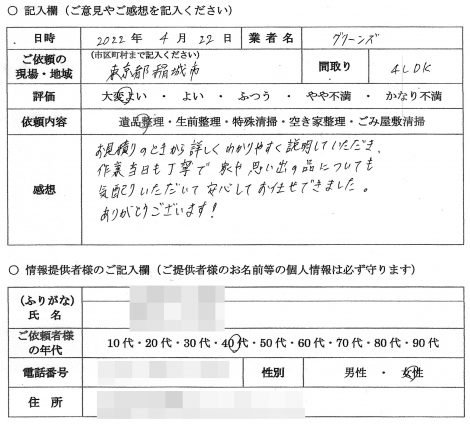 ○ 記入欄（ご意見やご感想を記入ください）
日時 2022 年 4 月 22 日 業者名 グリーンズ
ご依頼の現場・地域 (市区町村まで記入ください) 東京都稲城市 間取り 4LDK
評価 大変よい ・ よい ・ ふつう ・ やや不満 ・ かなり不満
依頼内容 遺品整理・生前整理・特殊清掃・空き家整理・ごみ屋敷清掃
感想
お見積りのときから詳しくわかりやすく説明していただき、
作業当日も丁寧で家や思い出の品についても
気配りいただいて安心してお任せできました。
ありがとうございます!
○ 情報提供者様のご記入欄（ご提供者様のお名前等の個人情報は必ず守ります）
(ふりがな)
氏 名
ご依頼者様の年代 10代・20代・30代・40代・50代・60代・70代・80代・90代
電話番号 性別 男性 ・ 女性
住 所